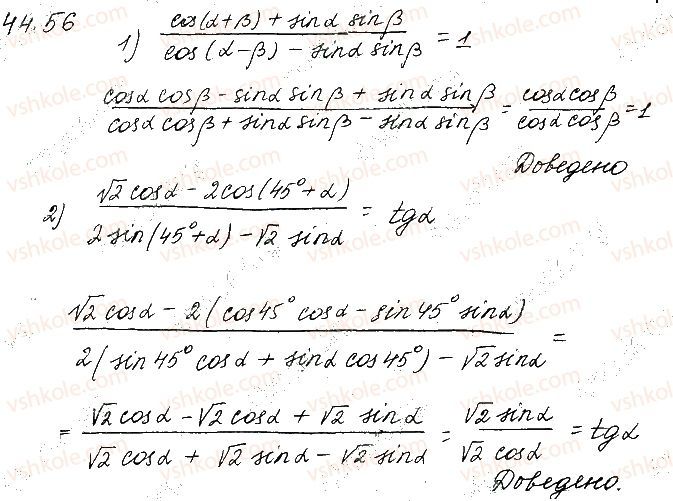 44.56
1) (cos(α+β) + sinα sinβ) / (cos(α-β) - sinα sinβ) = 1
(cosα cosβ - sinα sinβ + sinα sinβ) / (cosα cosβ + sinα sinβ - sinα sinβ) = (cosα cosβ) / (cosα cosβ) = 1
Доведено
2) (√2 cosα - 2cos(45°+α)) / (2 sin(45°+α) - √2 sinα) = tgα
(√2 cosα - 2(cos45° cosα - sin45° sinα)) / (2(sin45° cosα + sinα cos45°) - √2 sinα) =
= (√2 cosα - √2 cosα + √2 sinα) / (√2 cosα + √2 sinα - √2 sinα) = (√2 sinα) / (√2 cosα) = tgα
Доведено.
vshkole.com